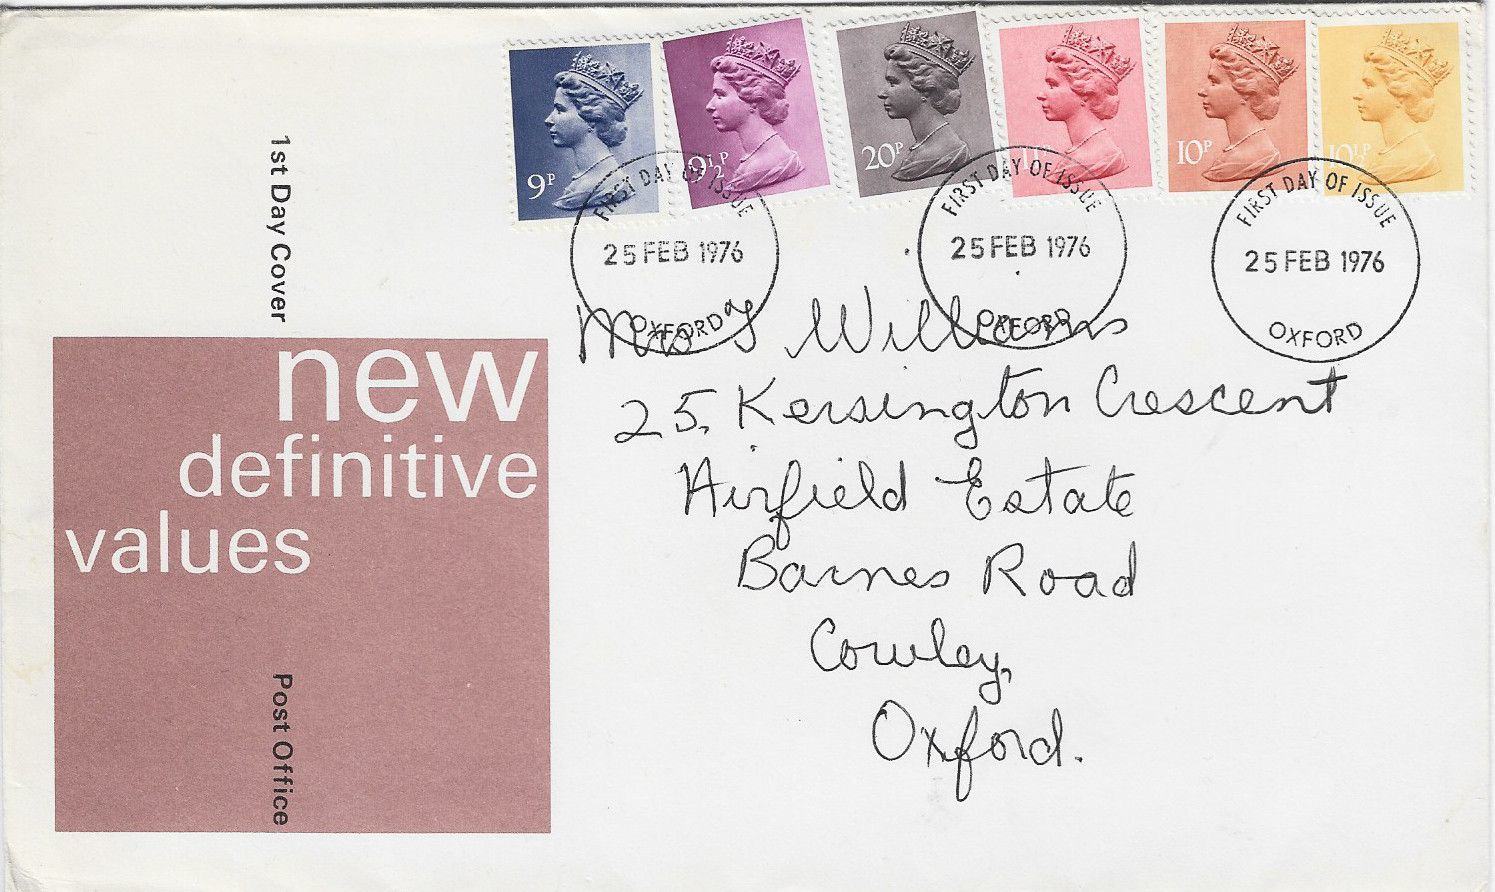 9P
9½P
20P
11P
10P
10½P
FIRST DAY OF ISSUE
25 FEB 1976
OXFORD
FIRST DAY OF ISSUE
25 FEB 1976
OXFORD
FIRST DAY OF ISSUE
25 FEB 1976
OXFORD
1st Day Cover
new
definitive
values
Post Office
Williams
25, Kersington Crescent
Airfield Estate
Barnes Road
Cowley,
Oxford.